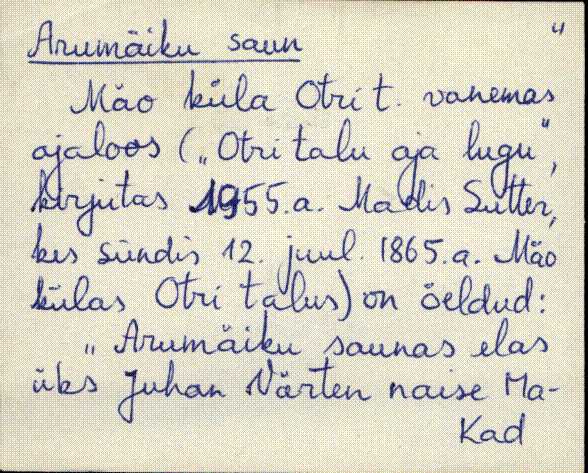 Arumäiku saun
Mäo küla Otri t. vanemas
ajaloos („Otri talu aja lugu",
kirjutas 1955.a. Madis Sutter,
kes sündis 12. juul. 1865.a. Mäo
külas Otri talus) on öeldud:
„Arumäiku saunas elas
üks Juhan Värten naise Ma-
Kad